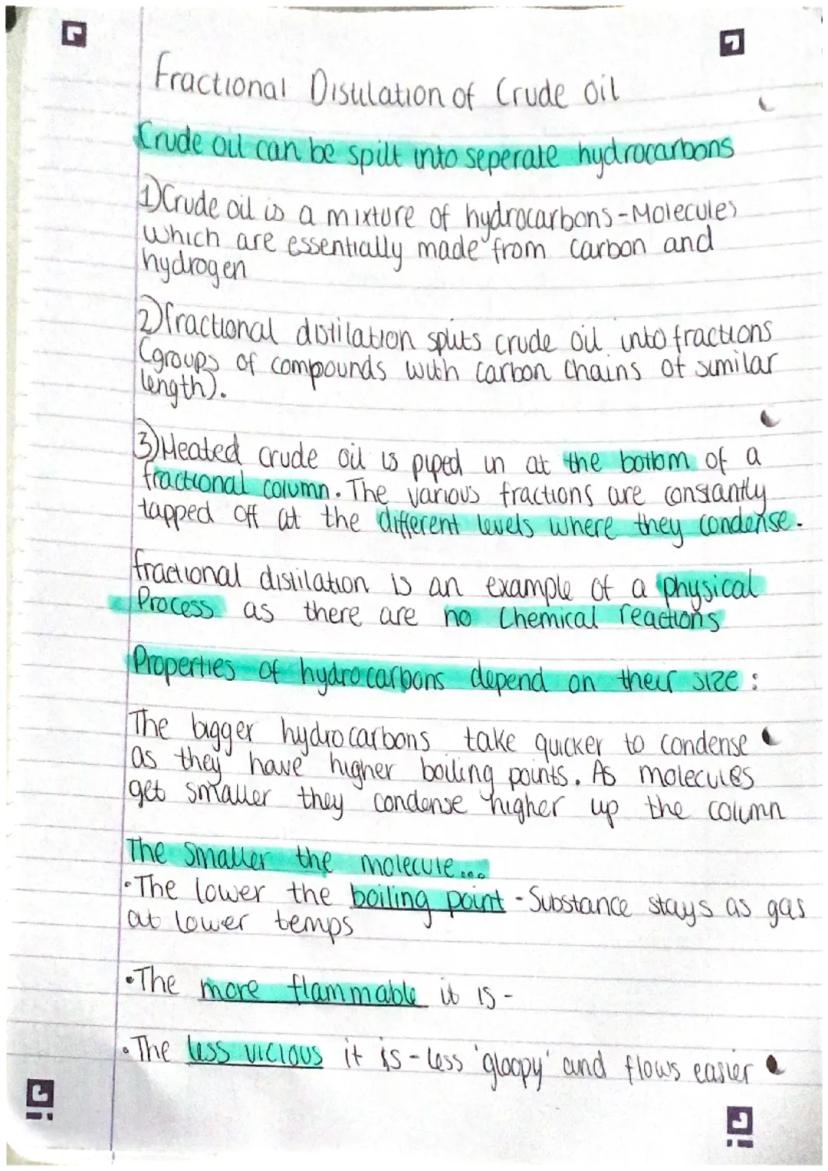 Fractional Distilation of Crude oil
Crude oil can be spilt into seperate hydrocarbons
1) Crude oil is a mixture of hydrocarbons - Molecules
which are essentially made from carbon and
hydrogen
2) fractional distilation splits crude oil into fractions
(groups of compounds with carbon chains of similar
length).
3) Heated crude oil is piped in at the bottom of a
fractional column. The various fractions are constantly
tapped off at the different levels where they condense.
fractional distilation is an example of a physical
Process as there are no chemical reactions
Properties of hydrocarbons depend on their size:
The bigger hydrocarbons take quicker to condense
as they have higher boiling points. As molecules
get smaller they condense higher up the column
The smaller the molecule...
•The lower the boiling point - Substance stays as gas
at lower temps
•The more flammable it is -
•The less vicious it is - less 'gloopy' and flows easier